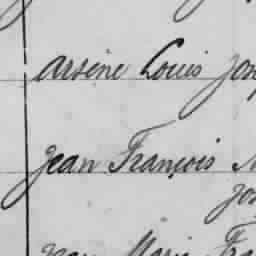 Arsène Louis Jos
Jean François
Jos
Jean Marie Fra